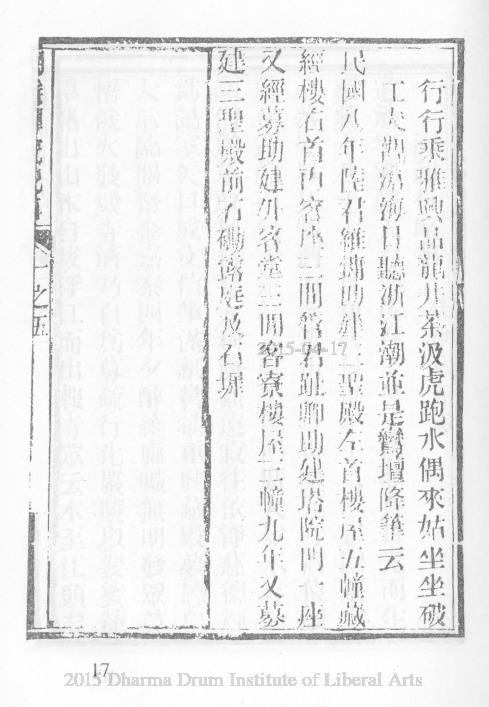 行行乘雅興品龍井茶汲虎跑水偶來姑坐坐破
江天觀滄海日聽浙江潮並是鸞壇降筆云
民國八年陸君維鏞助建三聖殿左首樓屋五幢藏
經樓右首內客座三間管君趾卿助建塔院門一座
又經募助建外客堂三間客寮樓屋三幢九年又募
建三聖殿前石磡露庭及石墀
之五
2015-04-17
17
2015 Dharma Drum Institute of Liberal Arts